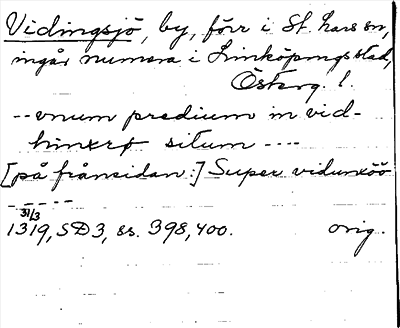 Vidingsjö, by, förr i St. Lars sn,
ingår numera i Linköpings stad,
Österg. l.
-- unum predium in vid-
hinxrø situm ----
[på frånsidan:] Super vidunxöö
-----
31/3
1319, SD 3, ss. 398, 400. orig.